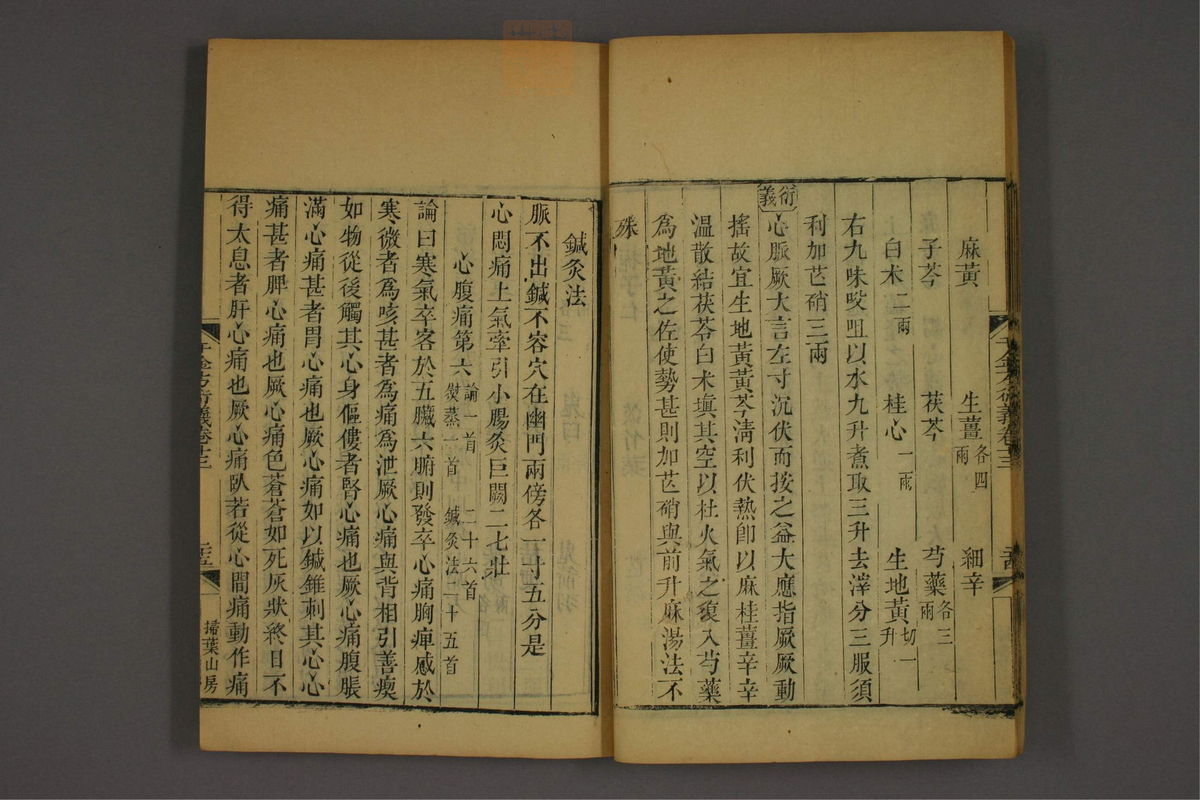 麻黃　生薑各四兩　細辛
子芩　茯苓　芍藥各三兩
白术二兩　桂心一兩　生地黃切一升
右九味㕮咀以水九升煮取三升去滓分三服須
利加芒硝三兩
衍義
心脈厥大言左寸沉伏而按之益大應指厥厥動
搖故宜生地黃黃芩淸利伏熱卽以麻桂薑辛辛
溫散結茯苓白术塡其空以杜火氣之復入芍藥
爲地黃之佐使勢甚則加芒硝與前升麻湯法不
殊
千金方衍義卷十三
鍼灸法
脈不出鍼不容穴在幽門兩傍各一寸五分是
心悶痛上氣牽引小腸灸巨闕二七壯
心腹痛第六論一首　二十六首　熨蒸一首　鍼灸法二十五首
論曰寒氣卒客於五臟六腑則發卒心痛胸痺感於
寒微者爲咳甚者爲痛爲泄厥心痛與背相引善瘈
如物從後觸其心身傴僂者腎心痛也厥心痛腹脹
滿心痛甚者胃心痛也厥心痛如以鍼錐刺其心心
痛甚者脾心痛也厥心痛色蒼蒼如死灰狀終日不
得太息者肝心痛也厥心痛臥若從心間痛動作痛
千金方衍義卷十三
掃葉山房